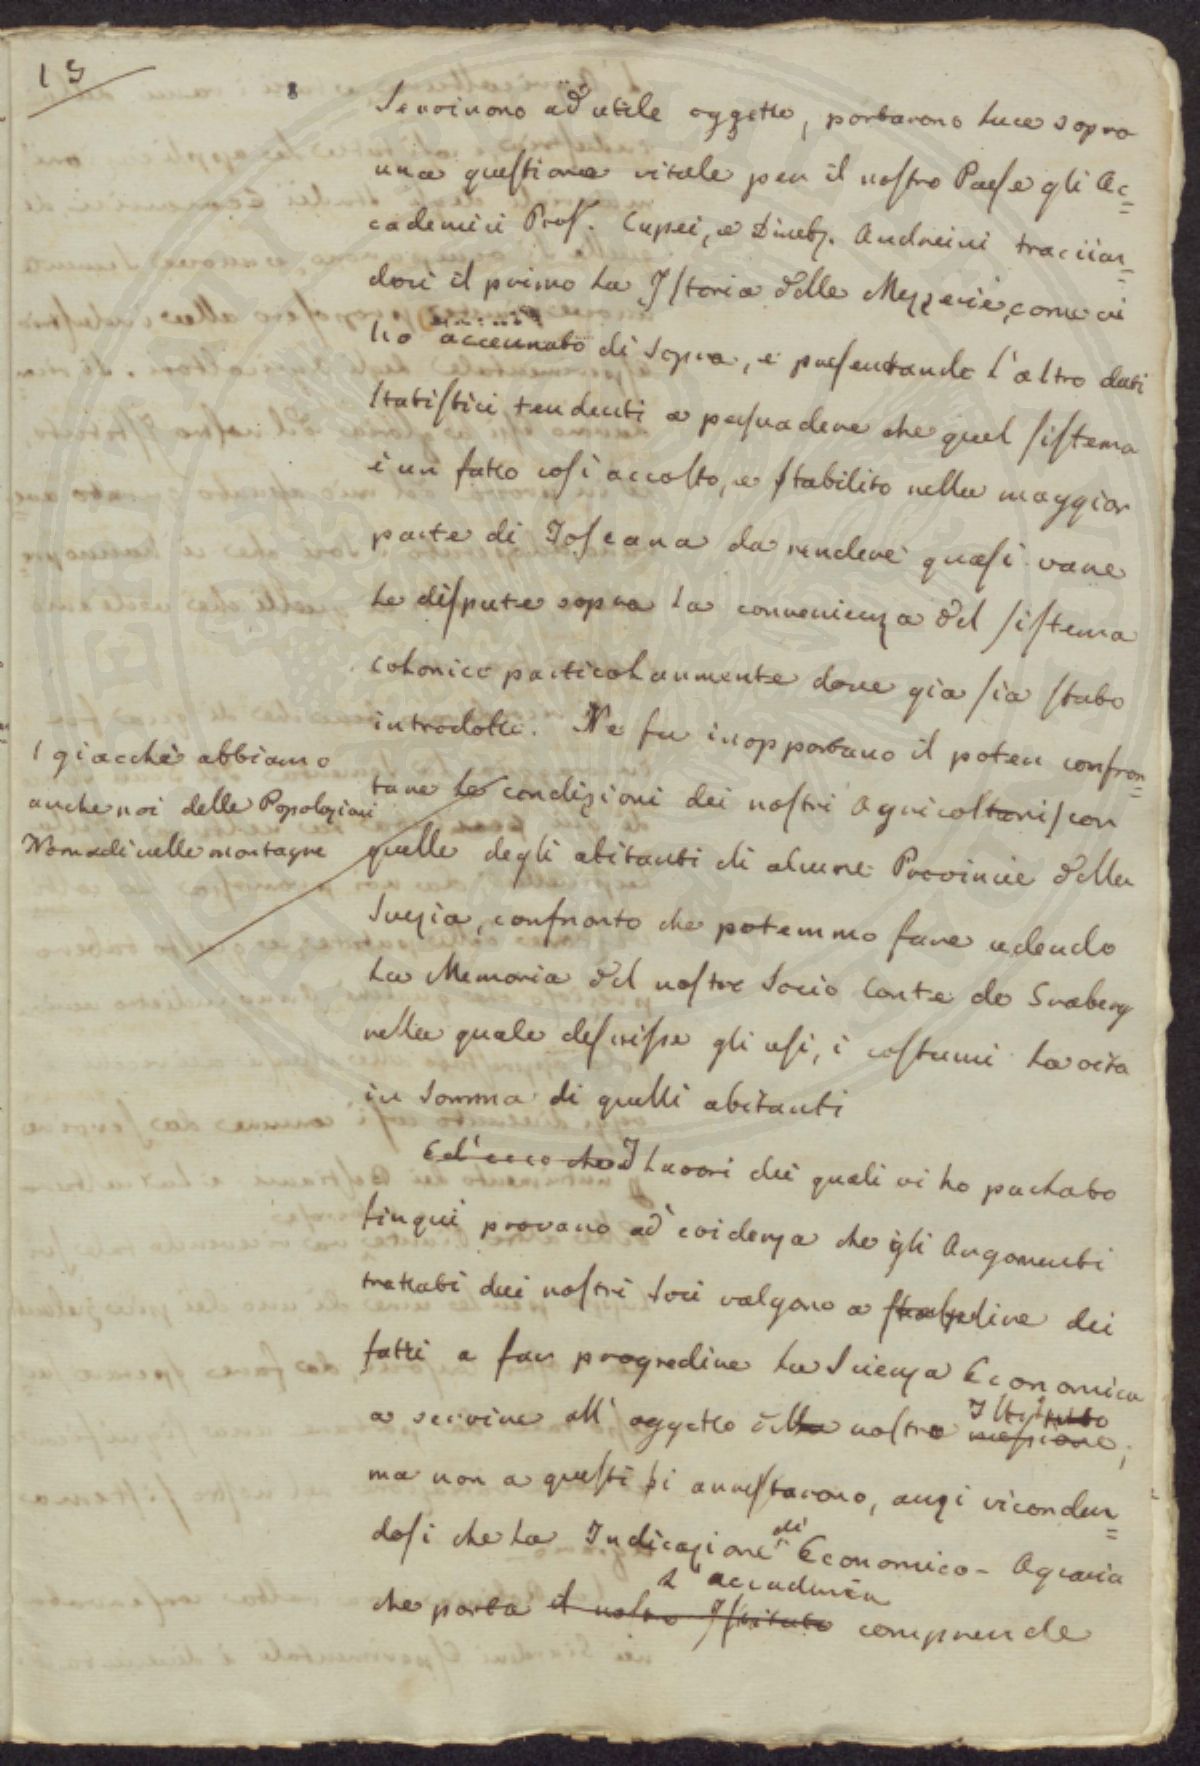 15
Servirono ad utile oggetto, portarono luce sopra
una questione vitale per il nostro Paese gli Ac=
cademici Prof. Cupei, e Dirett. Andreini traccian=
doci il primo la Istoria delle Mezzerie, come vi
ho accennato di sopra, e presentando l'altro dati
statistici tendenti a persuadere che quel sistema
è un fatto così accolto, e stabilito nella maggior
parte di Toscana da rendere quasi vane
le dispute sopra la convenienza del sistema
colonico particolarmente dove già sia stato
introdotto. Ne fu inopportuno il poter confron=
tare le condizioni dei nostri Agricoltori / con
quelle degli abitanti di alcune Provincie della
Svezia, confronto che potemmo fare udendo
la Memoria del nostro Socio Conte de Graberg
nella quale descrisse gli usi, i costumi la vita
in somma di quelli abitanti
/ giacchè abbiamo
anche noi delle Popolazioni
Nomadi nelle montagne
Ed ecco che I lavori dei quali vi ho parlato
finqui provano ad evidenza che gli Argomenti
trattati dai nostri Soci valgono a stabilire dei
fatti a far progredire la Scienza Economica
a servire all' oggetto della nostro missione Istituto;
ma non a questi si arrestarono, anzi ricordan=
dosi che la Indicazione di Economico-Agraria
che porta il nostro Istituto l'accademia comprende